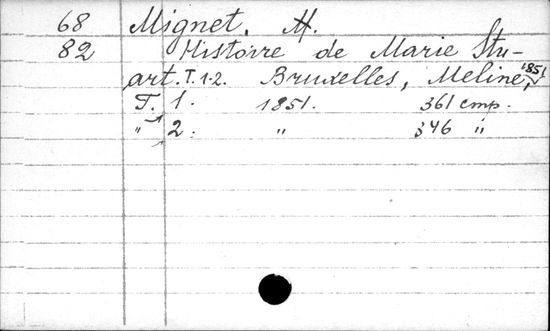 68 Mignet, M.
82 Histoire de Marie Stu-
art. T. 1-2. Bruxelles, Meline, 1851
T. 1. 1851. 361 стр.
" 2. " 346 "